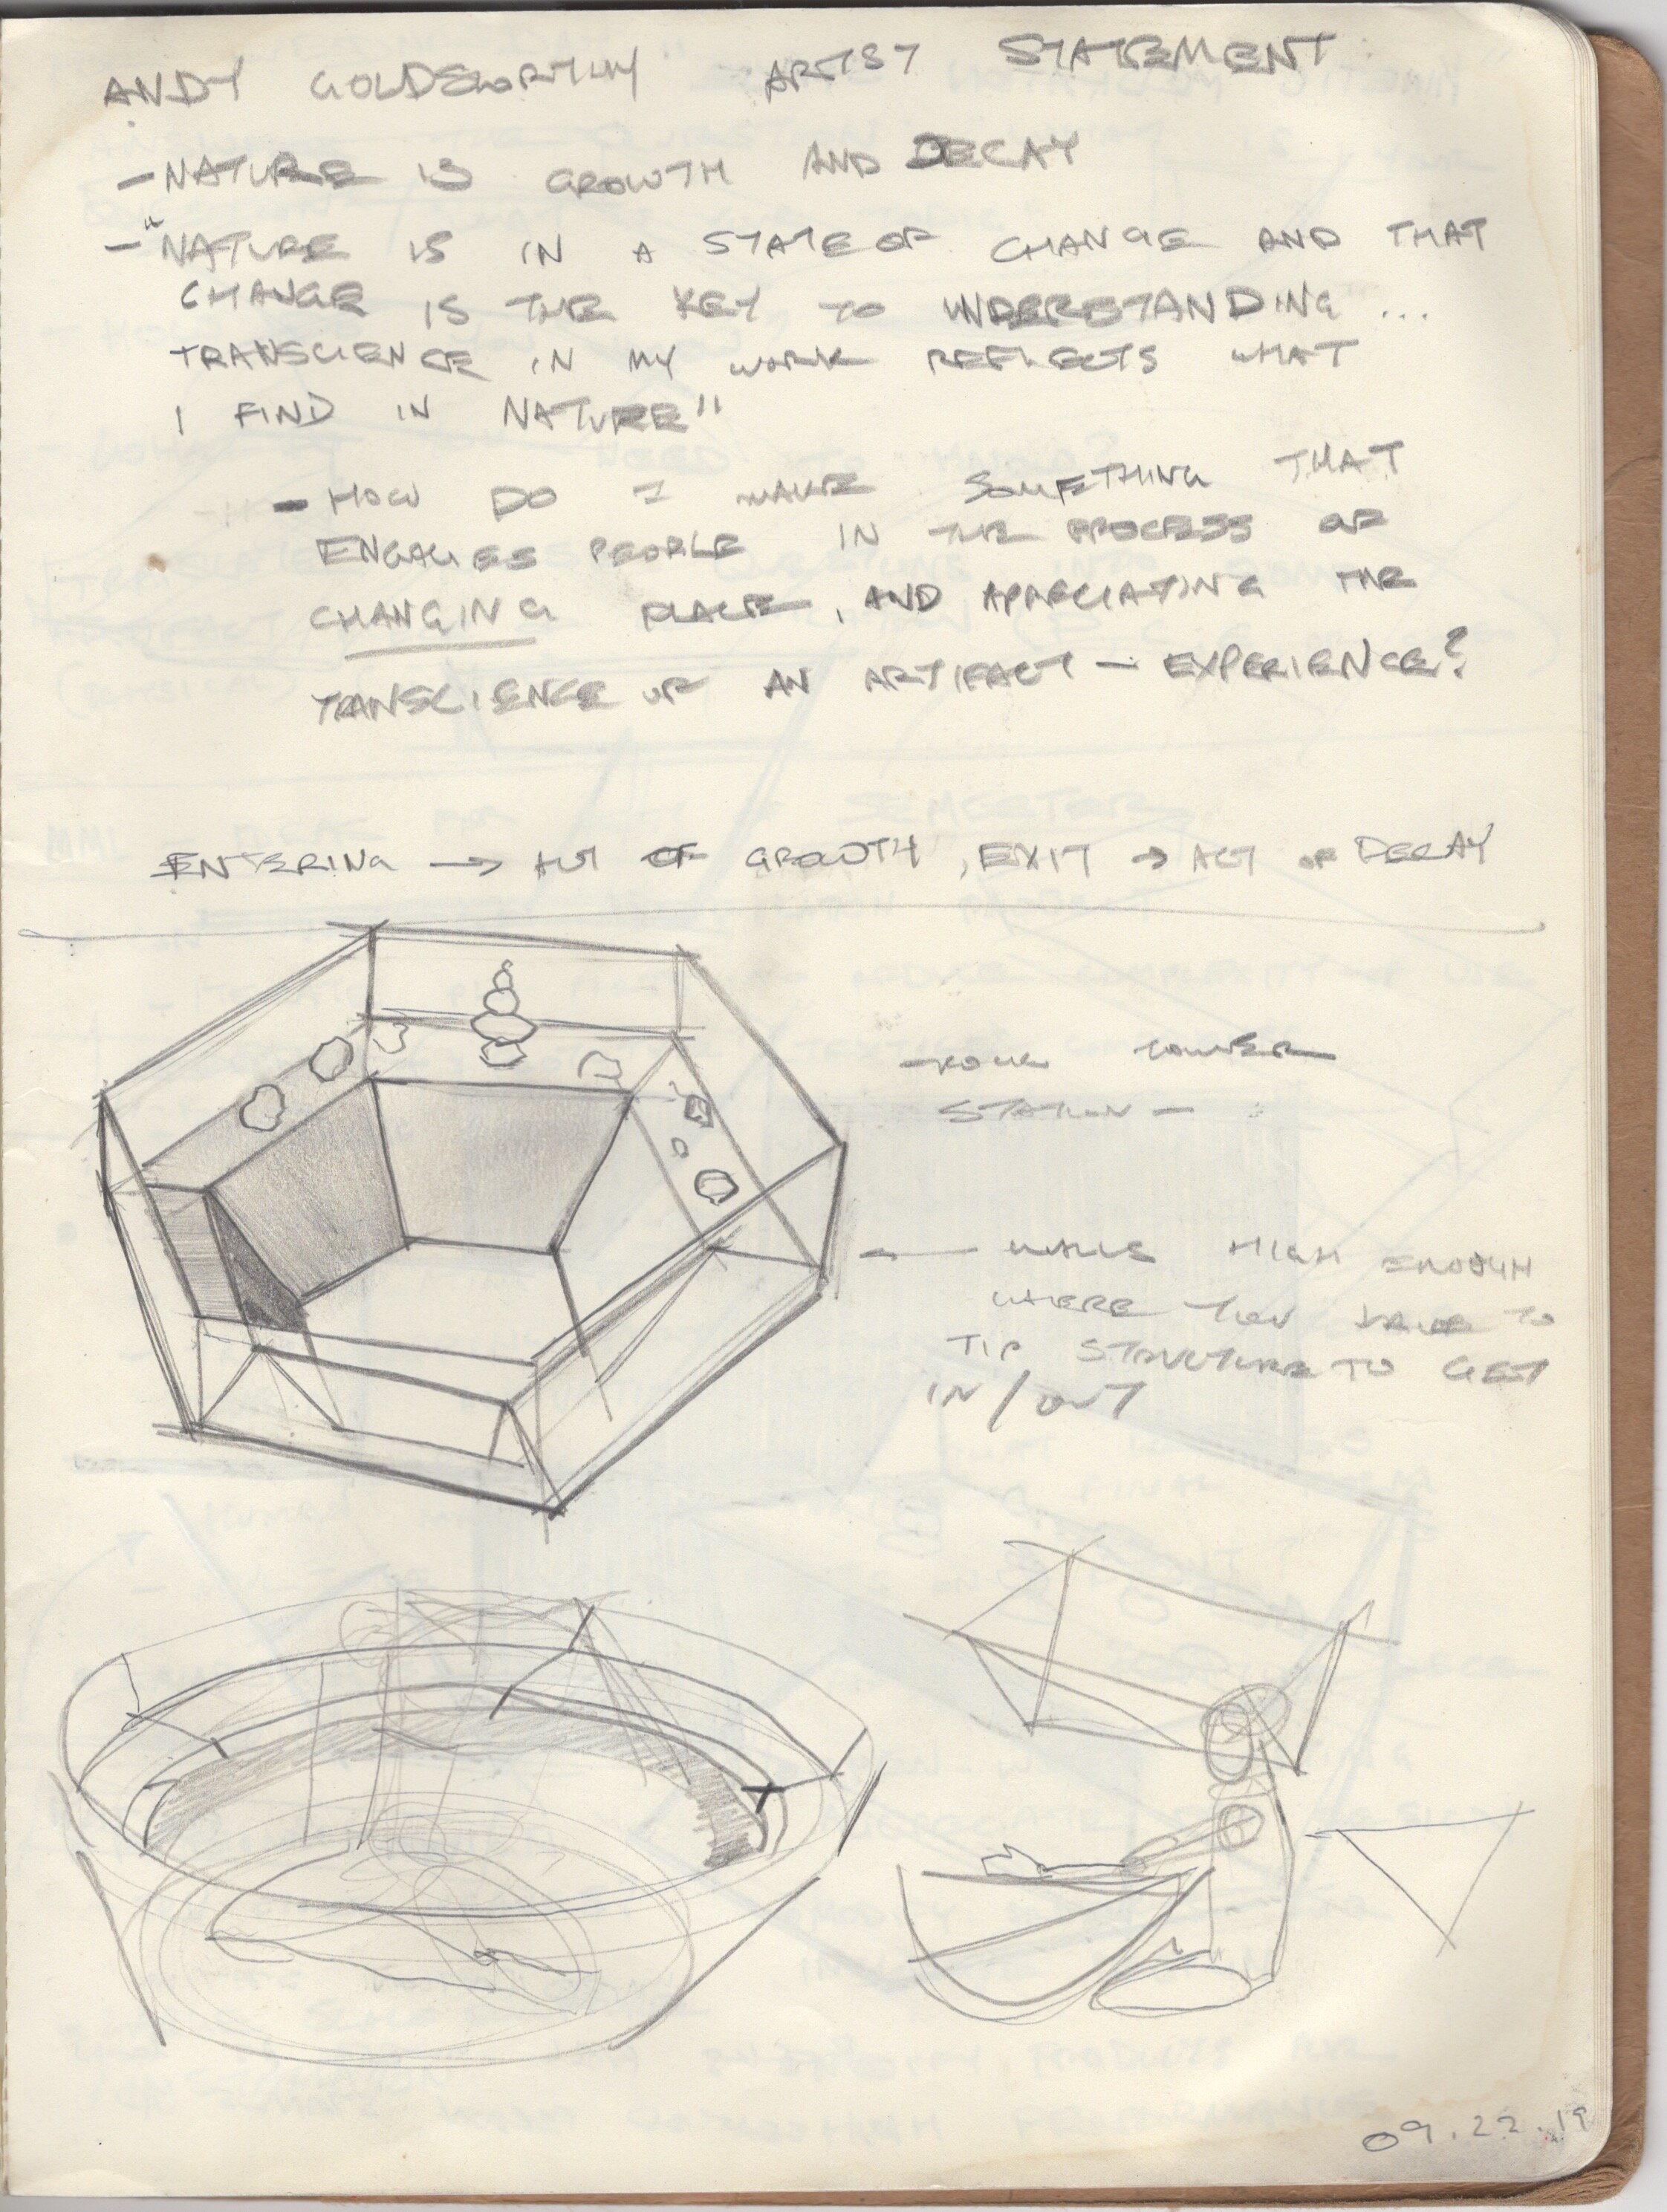 ANDY GOLDSWORTHY ARTIST STATEMENT
- NATURE IS GROWTH AND DECAY
- "NATURE IS IN A STATE OF CHANGE AND THAT
CHANGE IS THE KEY TO UNDERSTANDING ...
TRANSCIENCE IN MY WORK REFLECTS WHAT
I FIND IN NATURE"
- HOW DO I MAKE SOMETHING THAT
ENGAGES PEOPLE IN THE PROCESS OF
CHANGING PLACE, AND APRECIATING THE
TRANSCIENCE OF AN ARTIFACT - EXPERIENCE?
ENTERING → ACT OF GROWTH, EXIT → ACT OF DECAY
- ROCK TOWER
STATION -
← WALLS HIGH ENOUGH
WHERE YOU HAVE TO
TIP STRUCTURE TO GET
IN / OUT
09.22.19